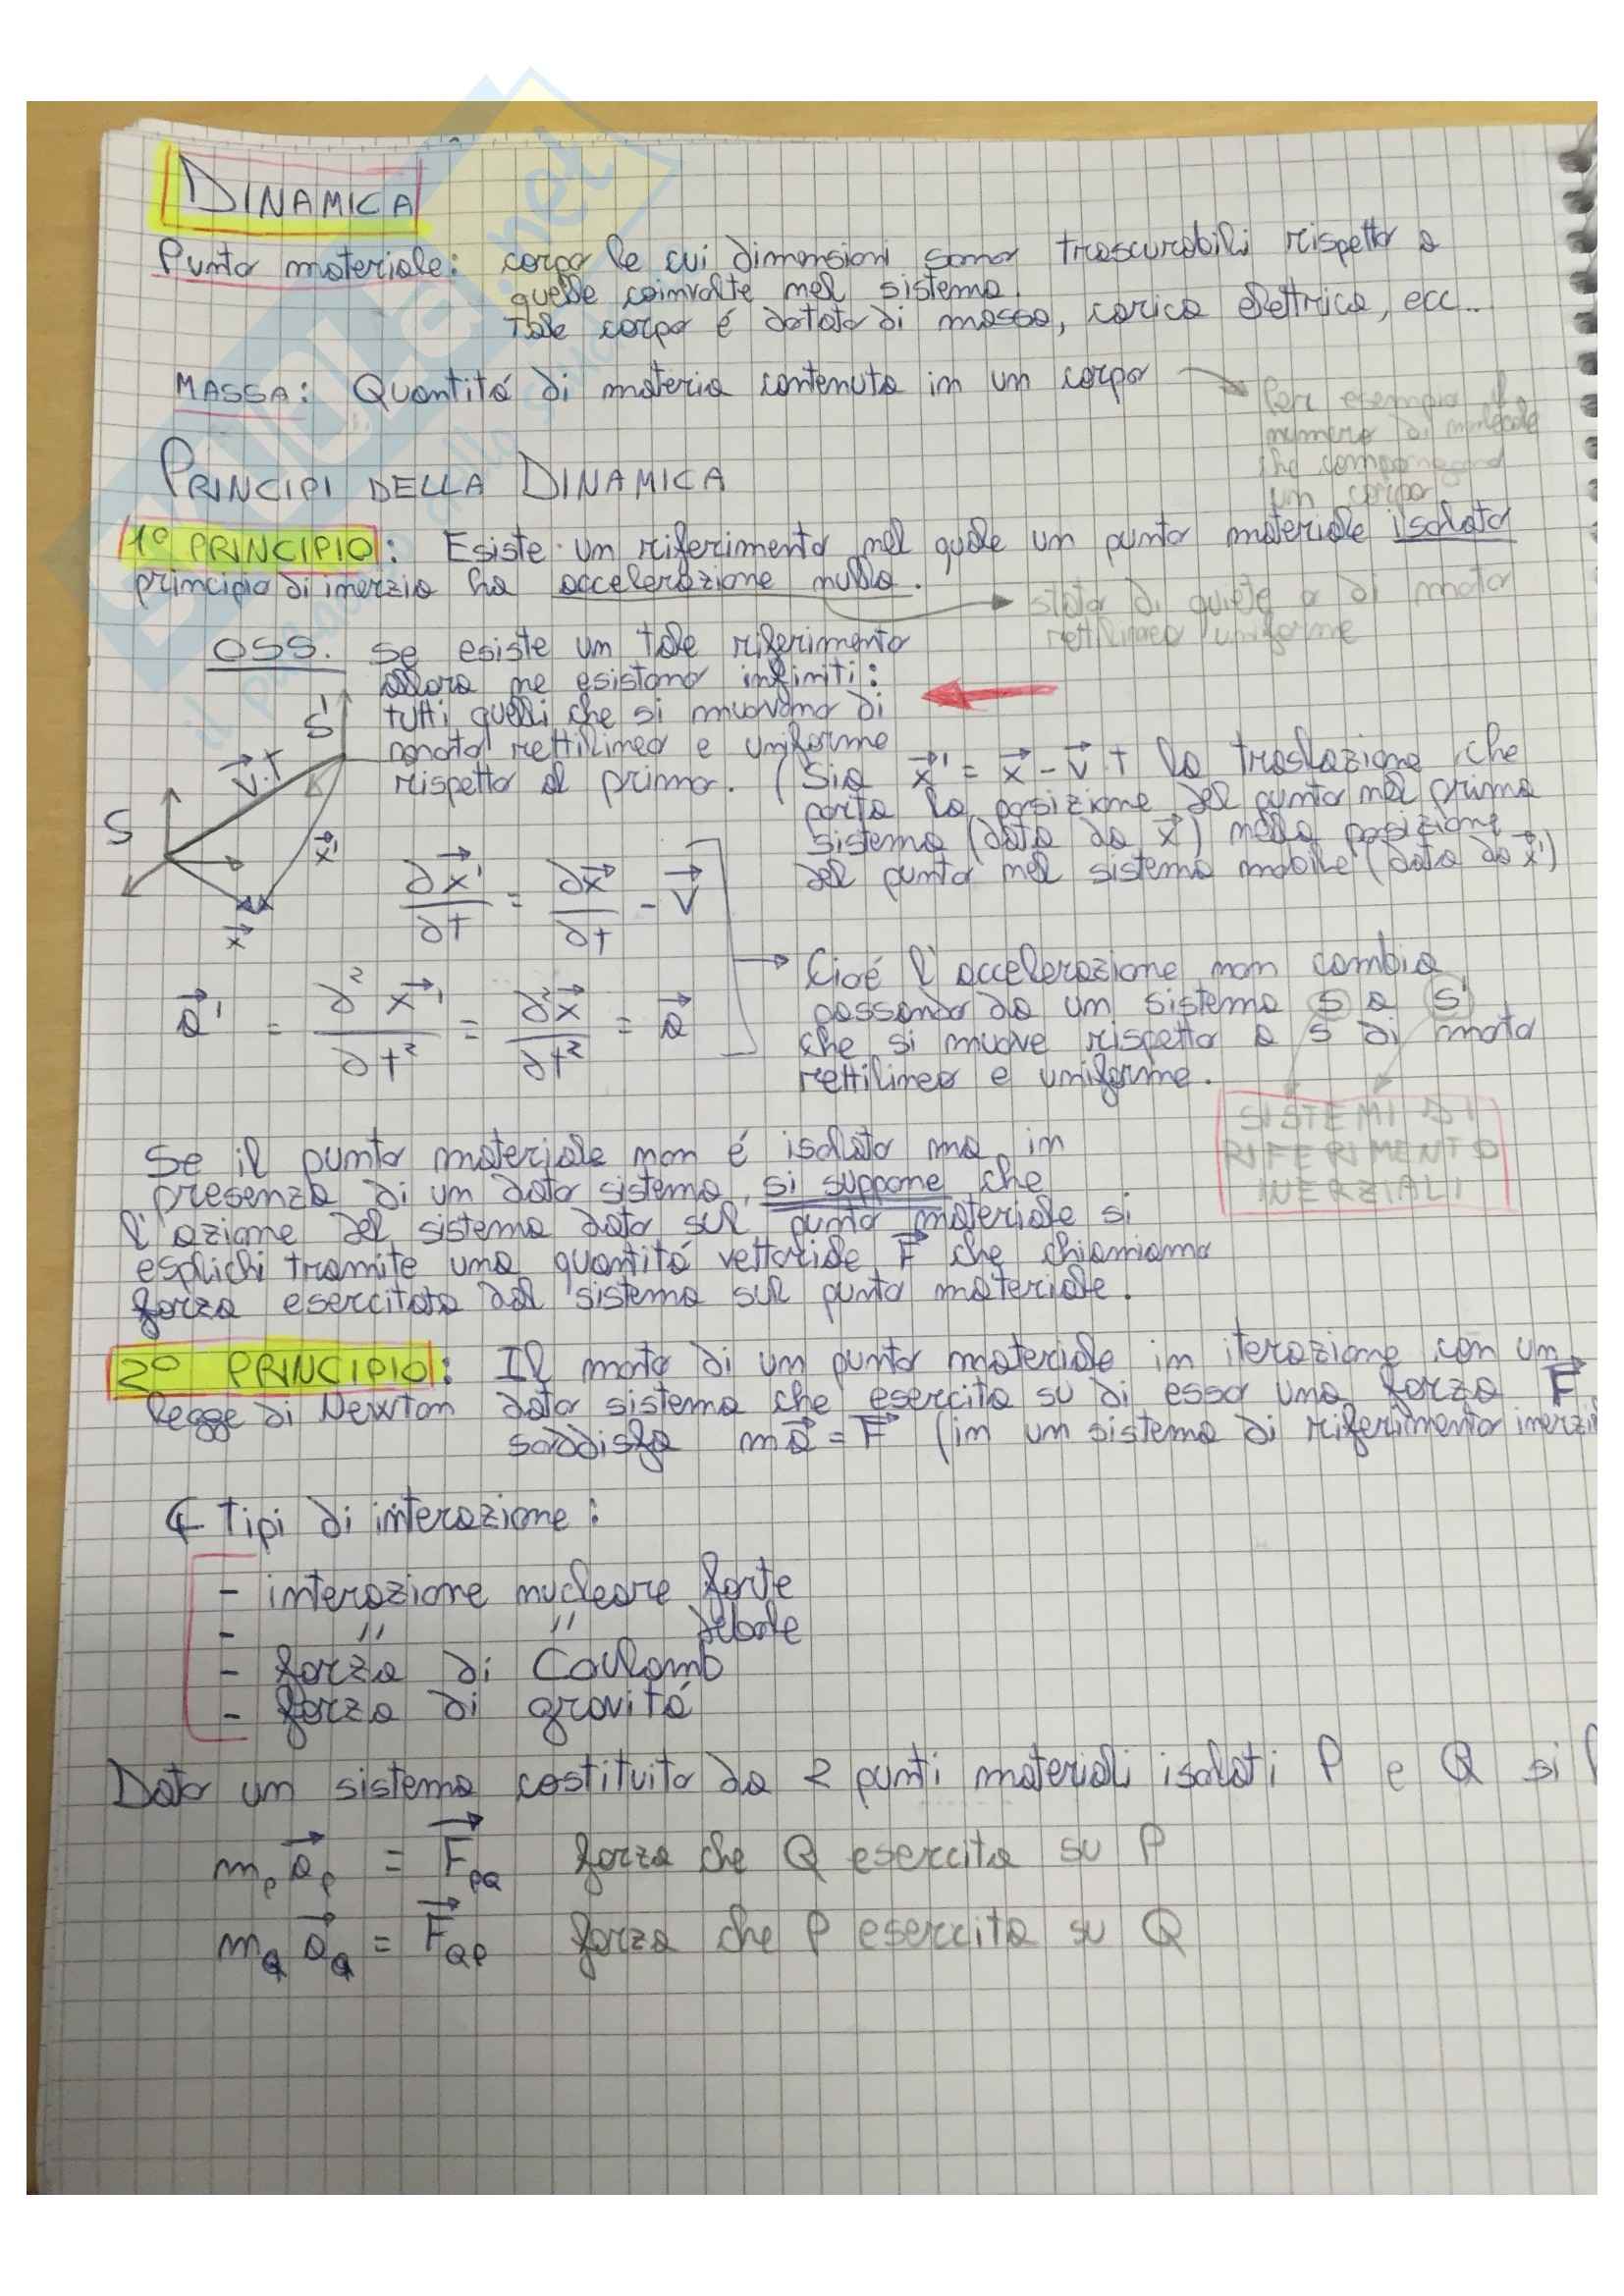 DINAMICA
Punto materiale: corpo le cui dimensioni sono trascurabili rispetto a
quelle coinvolte nel sistema.
Tale corpo é dotato di massa, carica elettrica, ecc..
MASSA: Quantitá di materia contenuta in un corpo
Per esempio il
numero di molecole
che compongono
un corpo
PRINCIPI DELLA DINAMICA
1° PRINCIPIO: Esiste un riferimento nel quale un punto materiale isolato
principio di inerzia ha accelerazione nulla.
stato di quiete o di moto
rettilineo uniforme
OSS. Se esiste un tale riferimento
allora ne esistono infiniti:
tutti quelli che si muovono di
moto rettilineo e uniforme
rispetto al primo. (Sia x⃗' = x⃗ - v⃗·t la traslazione che
porta la posizione del punto nel primo
sistema (data da x⃗) nella posizione
del punto nel sistema mobile (data da x⃗')
S'
v⃗·t
S
x⃗'
x⃗
∂x⃗'/∂t = ∂x⃗/∂t - v⃗
a⃗' = ∂²x⃗'/∂t² = ∂²x⃗/∂t² = a⃗
Cioé l'accelerazione non cambia
passando da un sistema S a S'
che si muove rispetto a S di moto
rettilineo e uniforme.
SISTEMI DI
RIFERIMENTO
INERZIALI
Se il punto materiale non é isolato ma in
presenza di un dato sistema, si suppone che
l'azione del sistema dato sul punto materiale si
esplichi tramite una quantitá vettoriale F⃗ che chiamiamo
forza esercitata dal sistema sul punto materiale.
2° PRINCIPIO: Il moto di un punto materiale in iterazione con un
legge di Newton dato sistema che esercita su di esso una forza F⃗
soddisfa ma⃗ = F⃗ (in un sistema di riferimento inerzi
4 Tipi di interazione:
- interazione nucleare forte
- " " debole
- forza di Coulomb
- forza di gravitá
Dato un sistema costituito da 2 punti materiali isolati P e Q si
m_P a⃗_P = F⃗_PQ forza che Q esercita su P
m_Q a⃗_Q = F⃗_QP forza che P esercita su Q